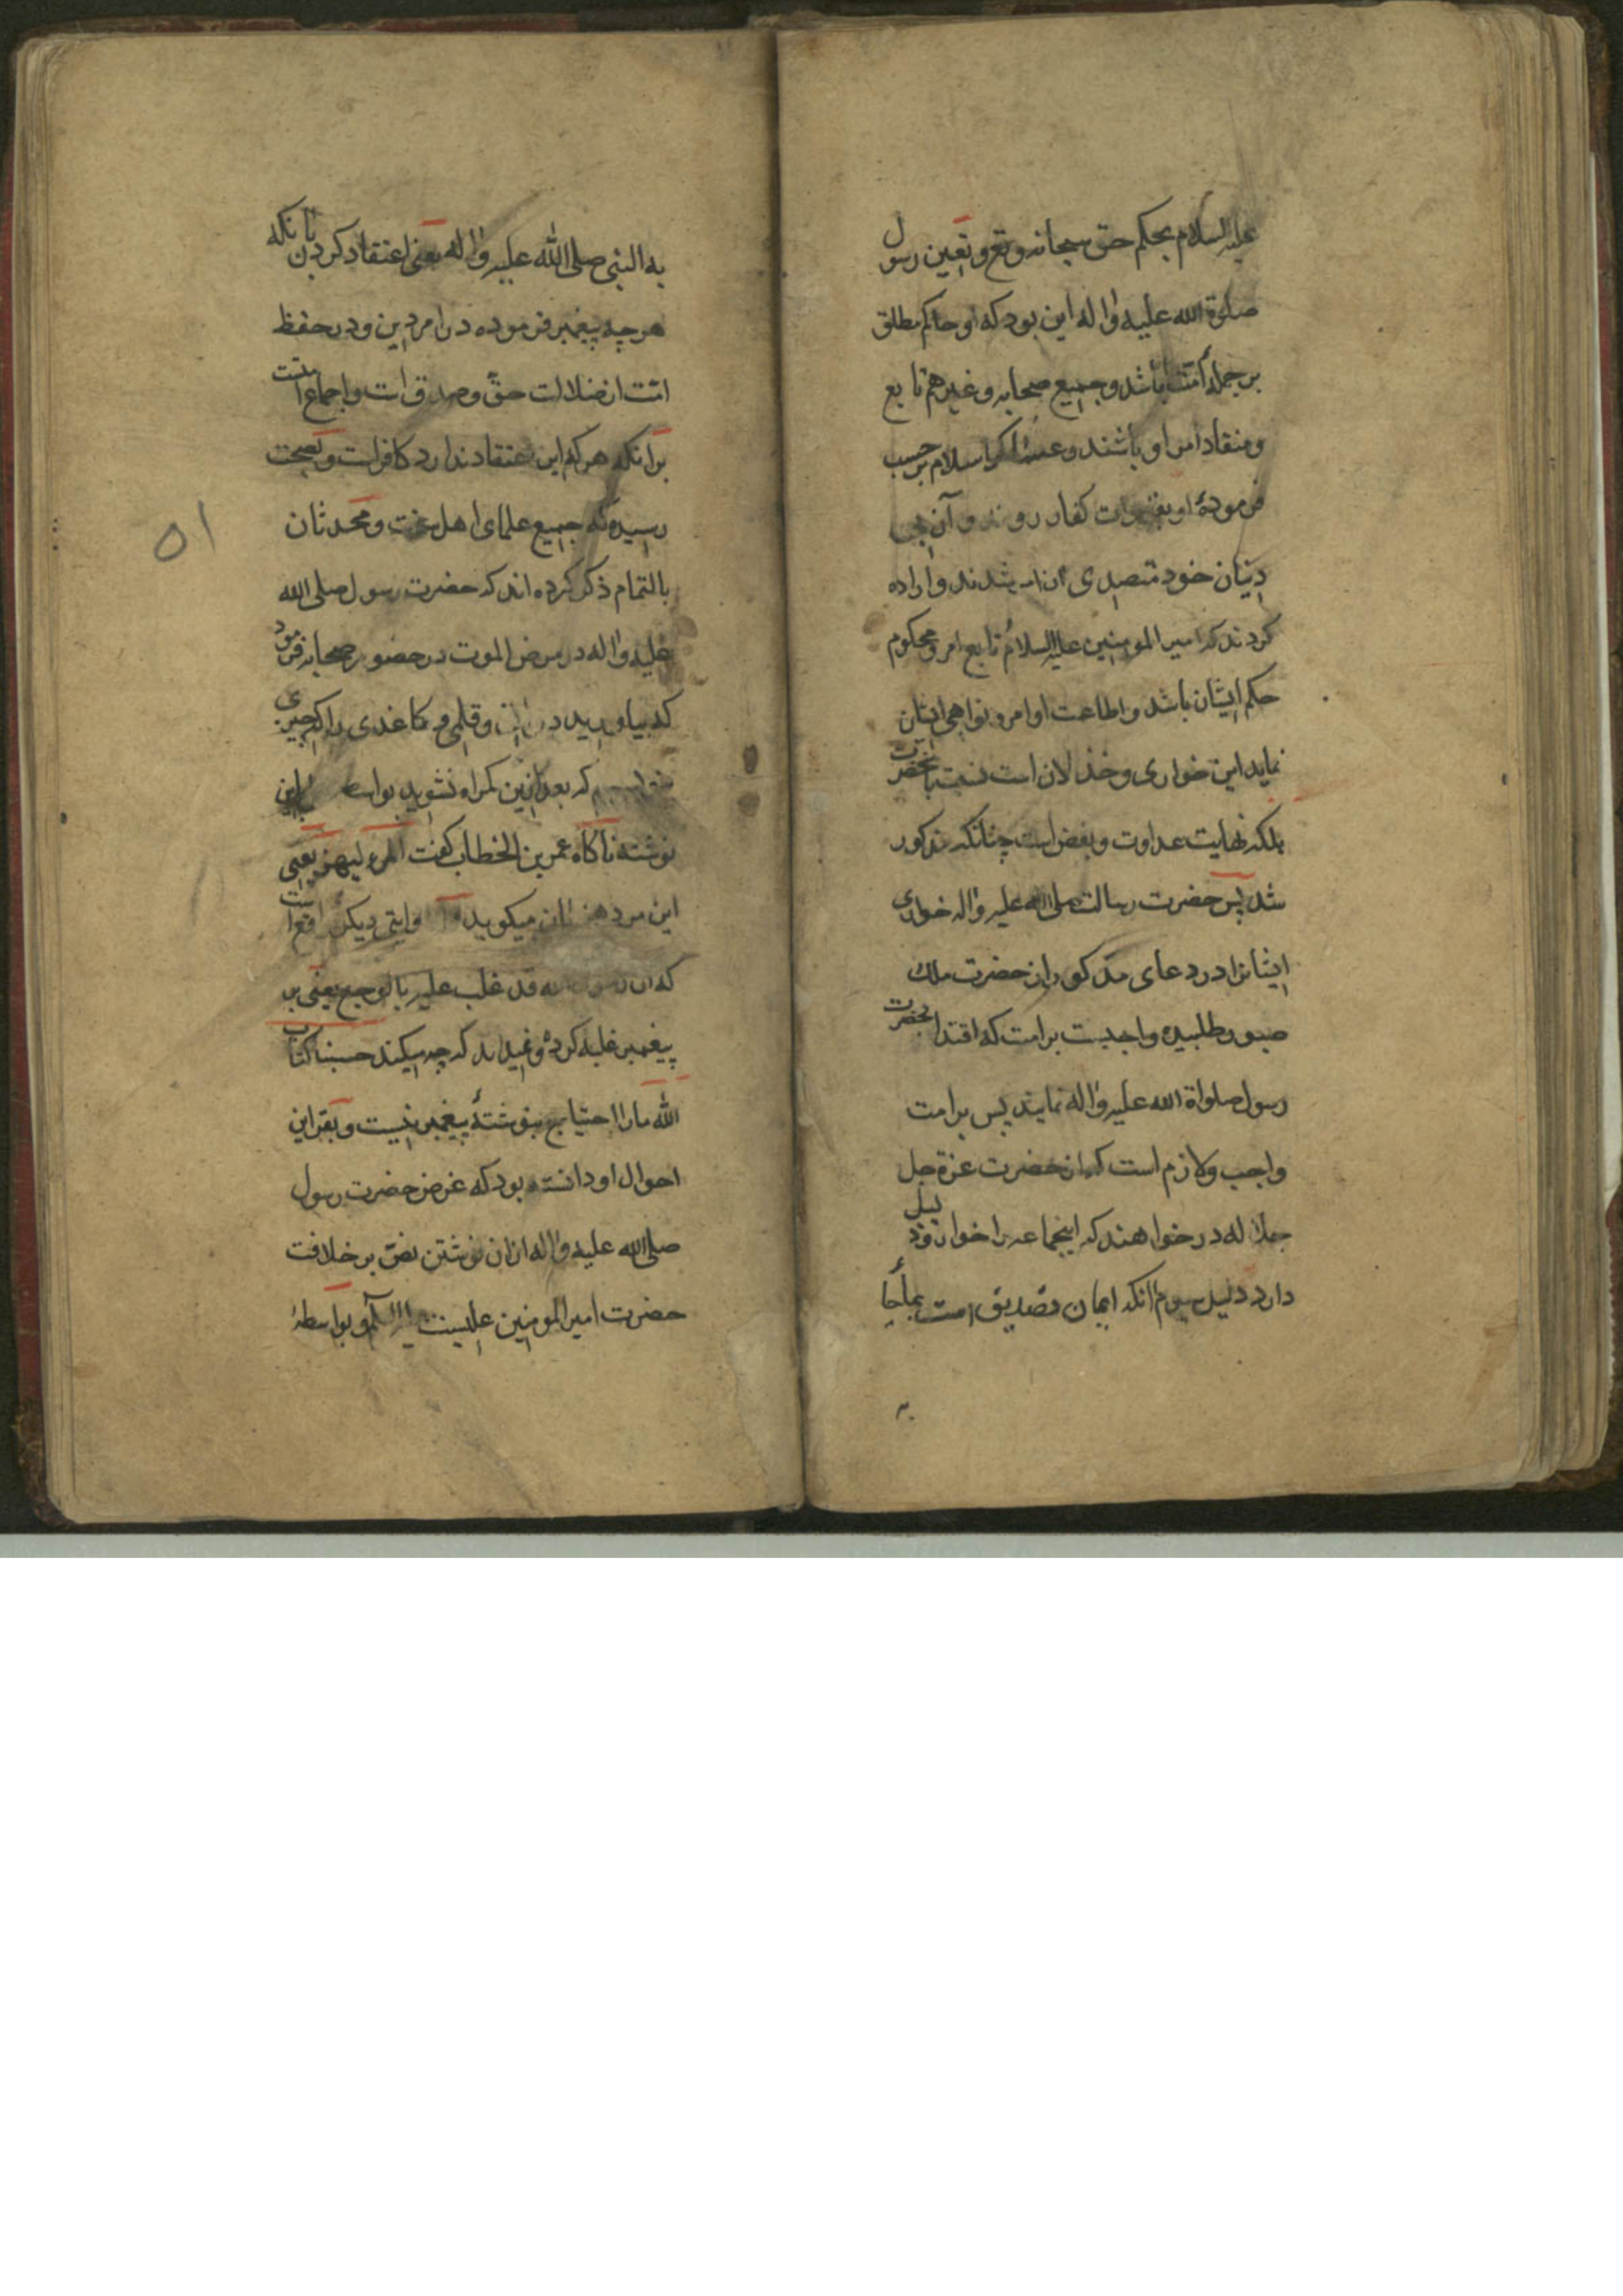 علیه السلام بحکم حق سبحانه وتع وتعین رسول
صلوة الله علیه واله این بود که او حاکم مطلق
بر جمله امت باشد وجمیع صحابه وغیرهم تابع
ومنقاد امر او باشند و اسلام بر حسب
فرمودهٔ او کفار روند و آن بی
دینان خود متصدی شدند واراده
کردند که امیر المومنین علیه السلام تابع امر ومحکوم
حکم ایشان باشد واطاعت اوامر ونواهی ایشان
نماید این خواری وخذلان است نسبت بانحضرت
بلکه نهایت عداوت وبغض است چنانکه مذکور
شد پس حضرت رسالت صلی الله علیه واله خواری
ایشانرا در دعای مذکور از حضرت ملک
صبور طلبیده واجبست بر امت که اقتدا بحضرت
رسول صلواة الله علیه واله نمایند پس بر امت
واجب ولازم است که از حضرت عزة جل
جلاله درخواهند که اینجماعه را خوار وذلیل
دارد دلیل سیوم آنکه ایمان تصدیق است بماجا
به
به النبی صلی الله علیه واله یعنی اعتقاد کردن بانکه
هرچه پیغمبر فرموده در امر دین ودر حفظ
امت از ضلالت حق وصدق است واجماع امتست
برانکه هر که این اعتقاد ندارد کافر است وبصحت
رسیده که جمیع علمای اهل سنت ومحدثان
بالتمام ذکر کرده اند که حضرت رسول صلی الله
علیه واله در مرض الموت در حضور صحابه فرمود
که بیاورید دواتی وقلمی وکاغذی را که چیزی
که بعد ازین کمراه نشوید بواسطه این
نوشته ناکاه عمر بن الخطاب کفت المرء لیهجر یعنی
این مرد هذیان میکوید وایتی دیکر واقع است
که ان قد غلب علیه بالوجع یعنی بر
پیغمبر غلبه کرده ونمیداند که چه میکند حسبنا کتاب
الله مارا احتیاج بنوشتهٔ پیغمبر نیست وبقراین
احوال او دانسته بود که غرض حضرت رسول
صلی الله علیه واله ازان نوشتن نص بر خلافت
حضرت امیر المومنین علیست وبواسطهٔ
۵۱